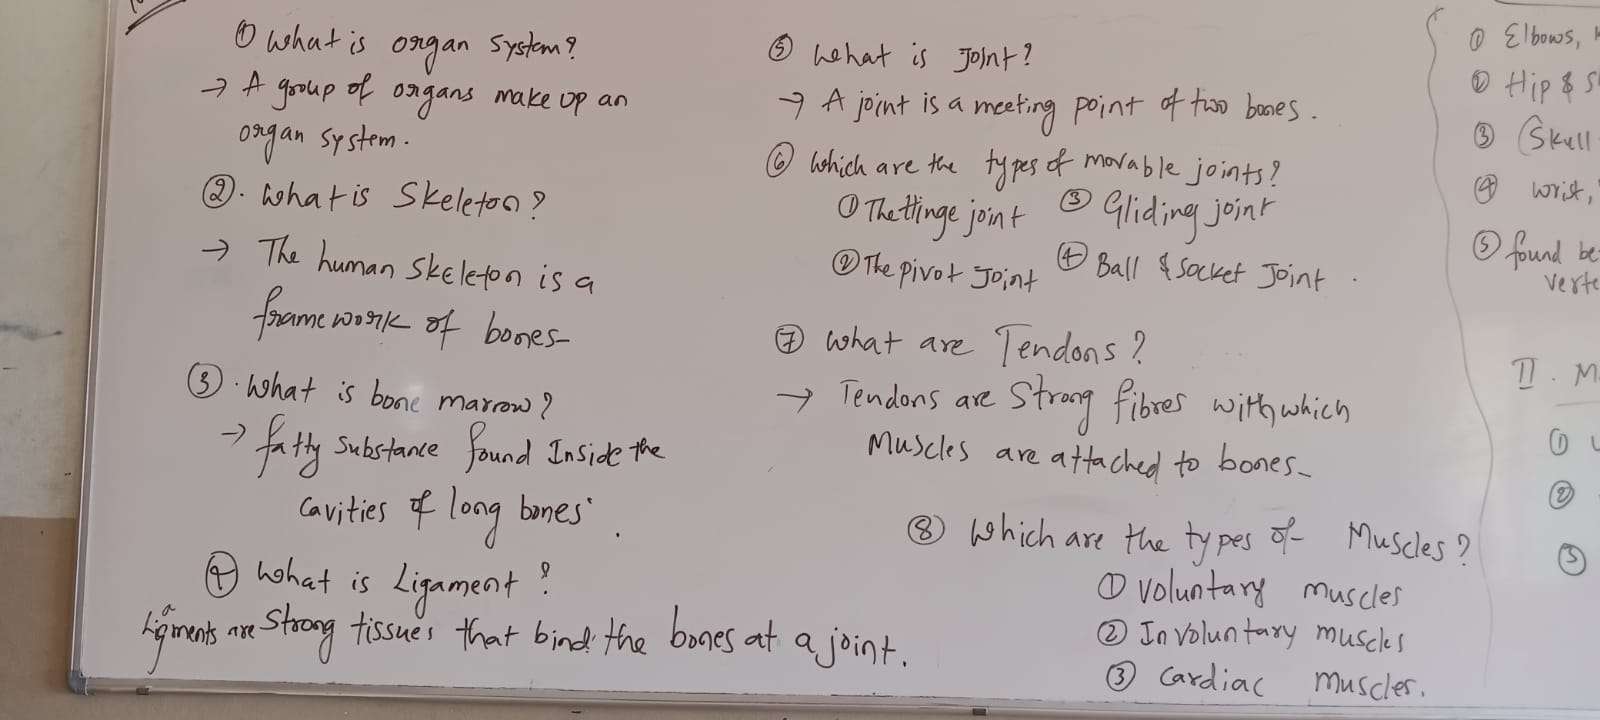 ① What is organ system?
→ A group of organs make up an
organ system.
②. What is Skeleton?
→ The human skeleton is a
framework of bones-
③. What is bone marrow?
→ fatty substance found Inside the
cavities of long bones.
④ What is Ligament?
Ligaments are Strong tissues that bind the bones at a joint.
⑤ What is Joint?
→ A joint is a meeting point of two bones.
⑥ Which are the types of movable joints?
① The Hinge joint ③ Gliding joint
② The pivot Joint ④ Ball & socket Joint.
⑦ What are Tendons?
→ Tendons are Strong fibres with which
Muscles are attached to bones-
⑧ Which are the types of Muscles?
① Voluntary muscles
② Involuntary muscles
③ Cardiac muscles.
① Elbows,
② Hip &
③ (Skull
④ wrist,
⑤ found
II.
①
②
③